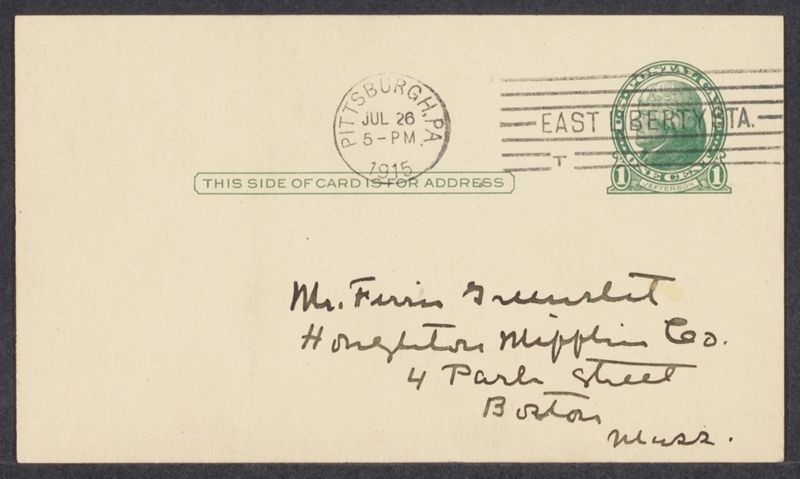 PITTSBURGH, PA.
JUL 26
5-PM
1915
EAST LIBERTY STA.
T
U.S. POSTAL CARD
ONE CENT
1 JEFFERSON 1
THIS SIDE OF CARD IS FOR ADDRESS
Mr. Ferris Greenslet
Houghton Mifflin Co.
4 Park Street
Boston
Mass.